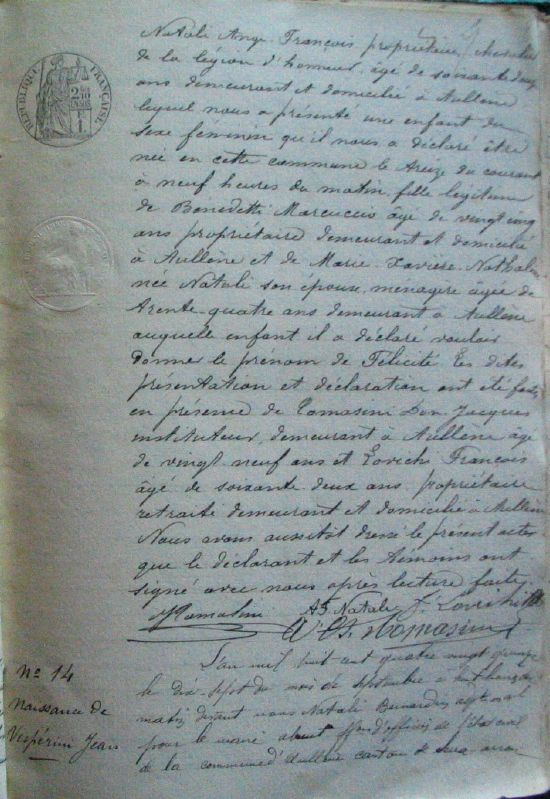 Natali Ange François propriétaire, chevalier
de la légion d'honneur, âgé de soixante douze
ans demeurant et domicilié à Aullene
lequel nous a présenté une enfant du
sexe féminin qu'il nous a déclaré être
née en cette commune le treize du courant
à neuf heures du matin, fille légitime
de Benedetti Marcuccio âgé de vingt cinq
ans propriétaire demeurant et domicilié
à Aullene et de Marie Xavière Nathalie
née Natali son épouse, menagère âgée de
trente quatre ans demeurant à Aullene
auquelle enfant il a déclaré vouloir
donner le prénom de Félicité Les dites
présentation et déclaration ont été faites
en présence de Tomasini Don Jacques
instituteur, demeurant à Aullene âgé
de vingt neuf ans et Lovichi François
âgé de soixante deux ans propriétaire
retraité demeurant et domicilié à Aullene
Nous avons aussitôt dressé le présent acte
que le déclarant et les témoins ont
signé avec nous après lecture faite,
AF Natali F. Lovichi
Tomasini
RÉPUBLIQUE FRANÇAISE
N° 14
Naissance de
Vespérini Jean
L'an mil huit cent quatre vingt quinze
le dix sept du mois de septembre à huit heures du
matin devant nous Natali adjoint
pour le maire absent officier de l'état civil
de la commune d'Aullene canton de Serra